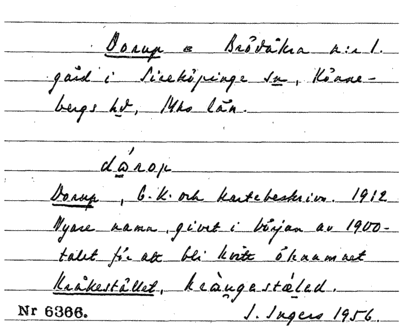 Dorup = Brödåkra n:r 1.
gård i Sireköpinge sn, Rönne-
bergs hd, Mhs län.
dárop
Dorup, G.K. och kartebeskrivn. 1912
Nyare namn, givet i början av 1900-
talet för att bli kvitt öknamnet
Kråkestället, kràngastáled.
Nr 6366. I. Ingers 1956.